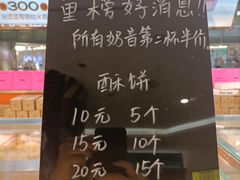 300
重榜好消息!!
所有奶昔第二杯半价
酥饼
10元 5个
15元 10个
20元 15个